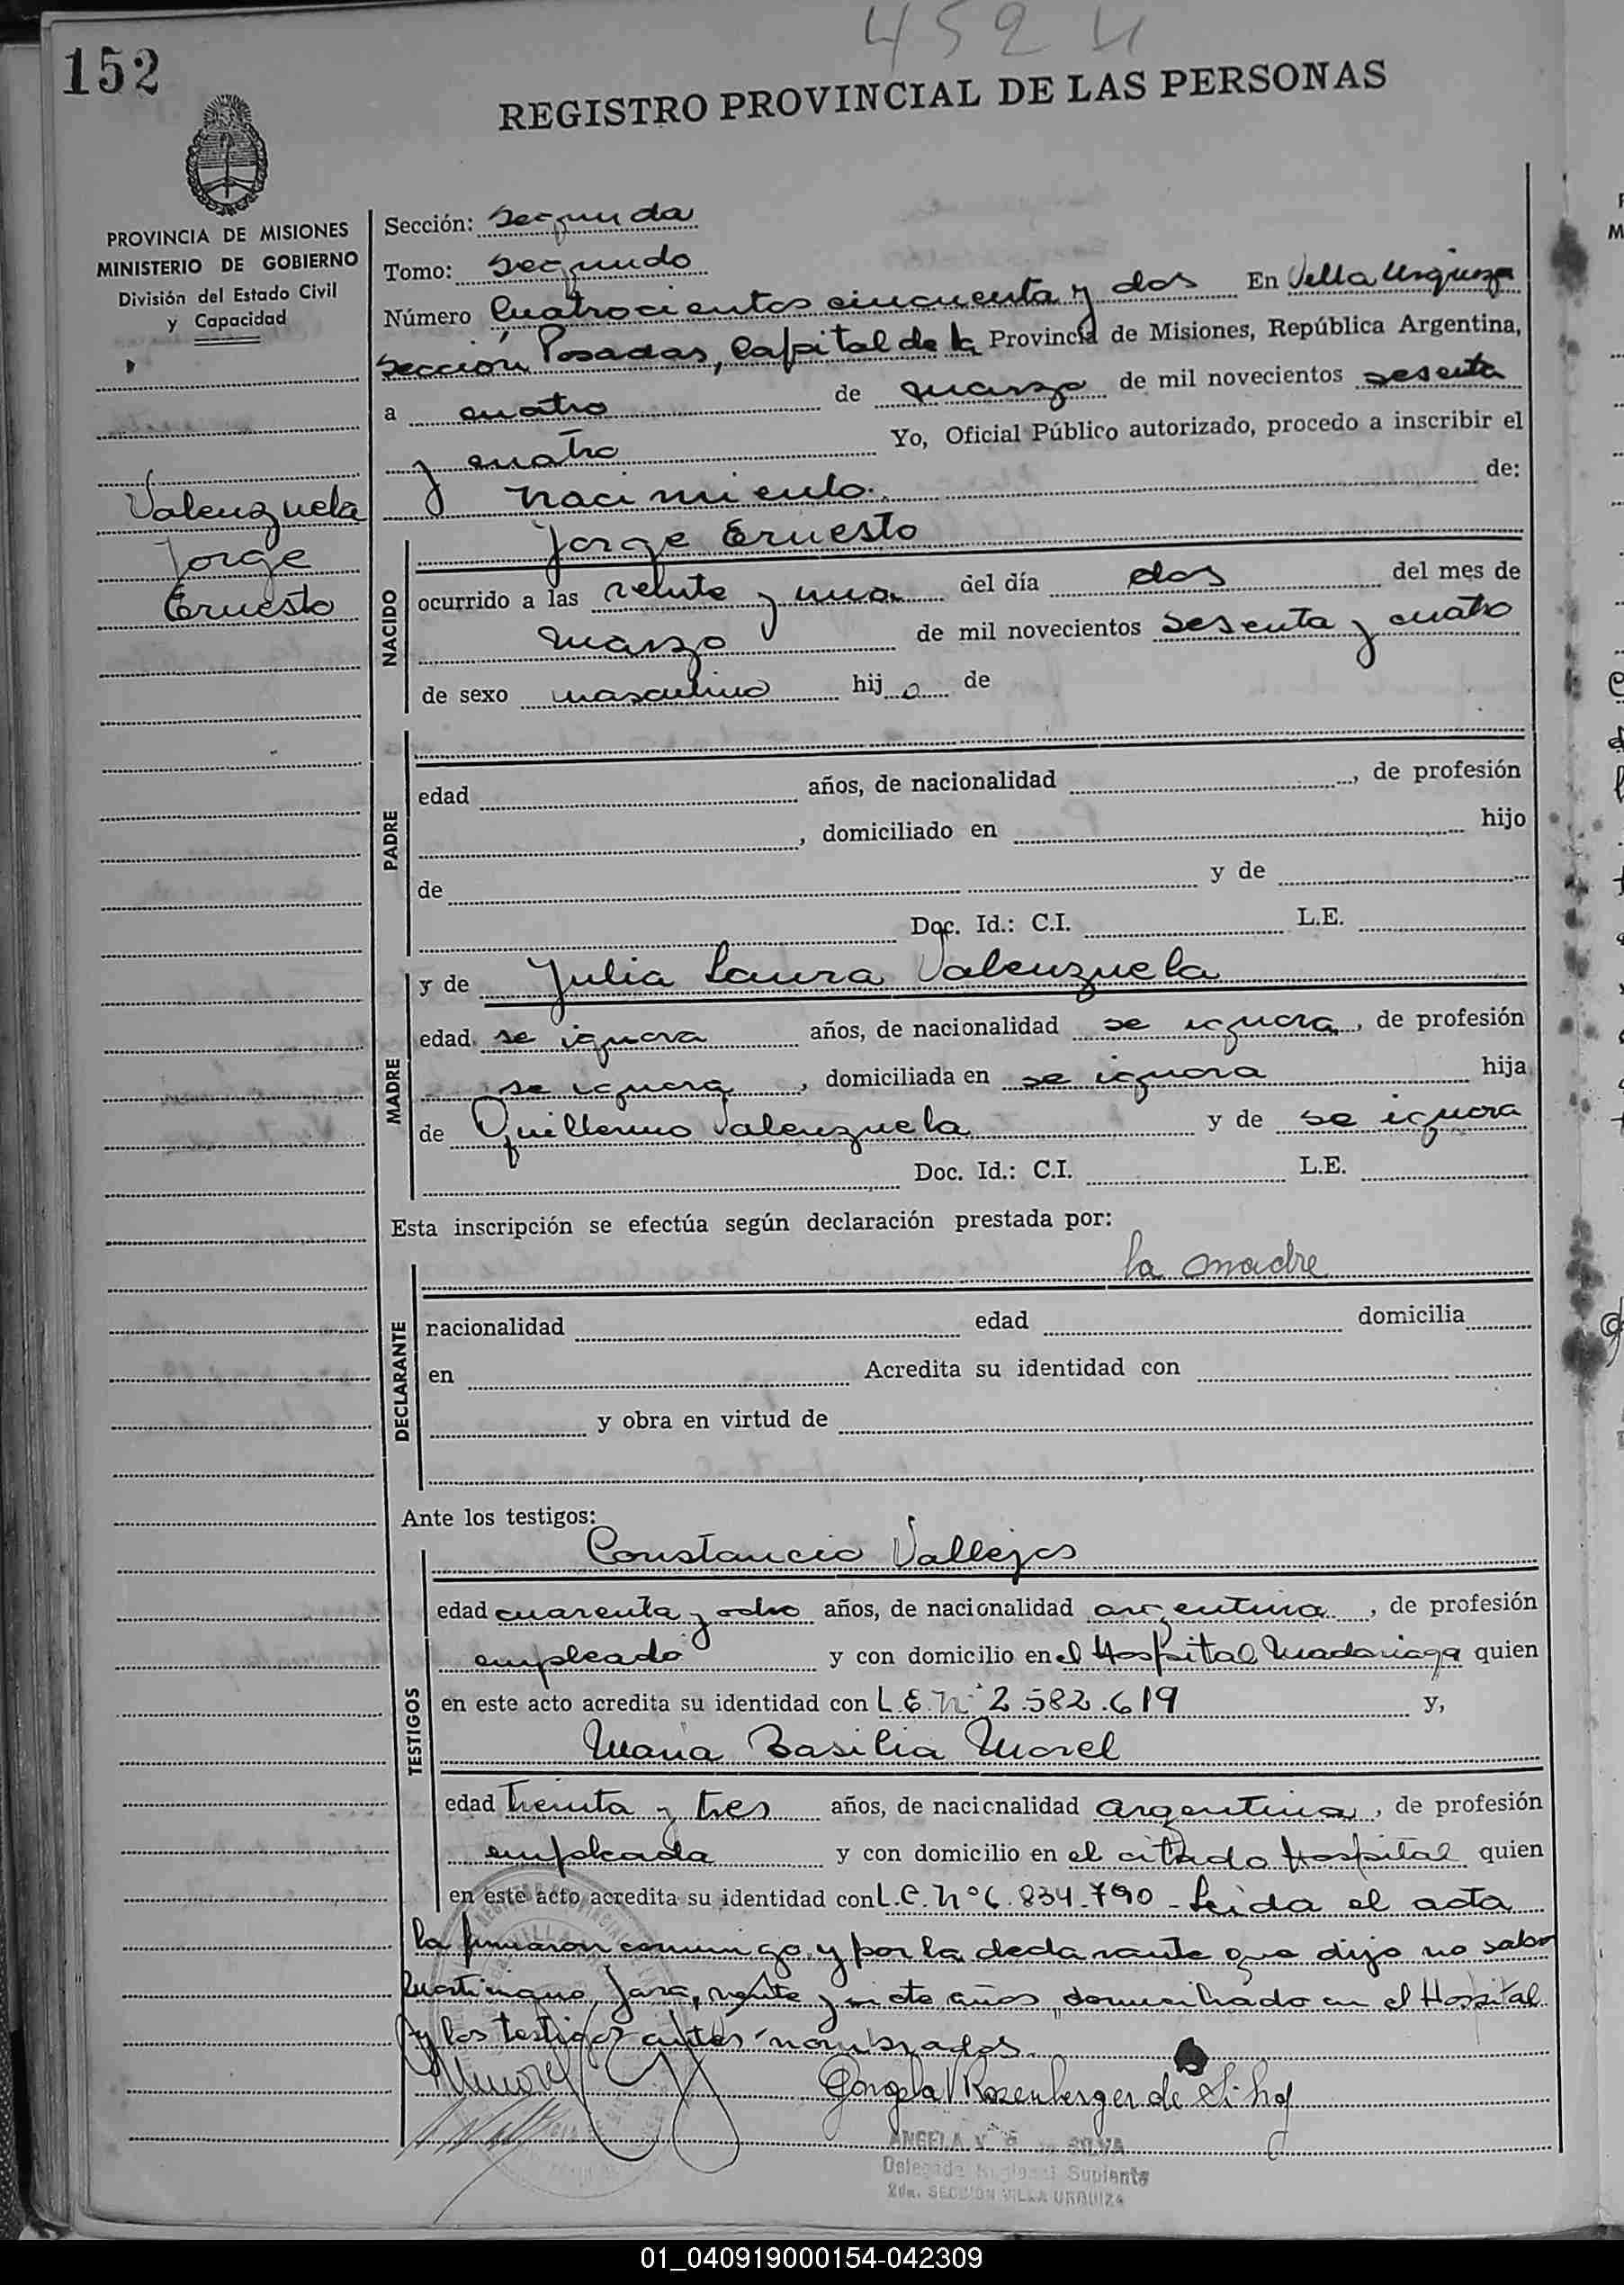 452
152
REGISTRO PROVINCIAL DE LAS PERSONAS
PROVINCIA DE MISIONES
MINISTERIO DE GOBIERNO
División del Estado Civil
y Capacidad
Valenzuela
Jorge
Ernesto
Sección: Segunda
Tomo: Segundo
Número Cuatrocientos cincuenta y dos En Villa Urquiza
Sección Posadas, Capital de la Provincia de Misiones, República Argentina,
a cuatro de marzo de mil novecientos sesenta
y cuatro Yo, Oficial Público autorizado, procedo a inscribir el
nacimiento. de:
NACIDO
Jorge Ernesto
ocurrido a las veinte y una del día dos del mes de
marzo de mil novecientos sesenta y cuatro
de sexo masculino hijo de
PADRE
edad años, de nacionalidad , de profesión
, domiciliado en hijo
de y de
Doc. Id.: C.I. L.E.
MADRE
y de Julia Laura Valenzuela
edad se ignora años, de nacionalidad se ignora, de profesión
se ignora, domiciliada en se ignora hija
de Guillermo Valenzuela y de se ignora
Doc. Id.: C.I. L.E.
Esta inscripción se efectúa según declaración prestada por:
DECLARANTE
la madre
nacionalidad edad domicilia
en Acredita su identidad con
y obra en virtud de
Ante los testigos:
TESTIGOS
Constancio Vallejos
edad cuarenta y ocho años, de nacionalidad argentina, de profesión
empleado y con domicilio en el Hospital Madariaga quien
en este acto acredita su identidad con L.E. Nº 2.582.619 y,
Maria Basilia Morel
edad treinta y tres años, de nacionalidad argentina, de profesión
empleada y con domicilio en el citado Hospital quien
en este acto acredita su identidad con L.C. Nº 6.834.790 - Leida el acta
la firmaron conmigo y por la declarante que dijo no saber
Martiniano Jara, veinte y siete años, domiciliado en el Hospital
y los testigos antes nombrados.
Angela V Rozenberger de Silva
ANGELA V. SILVA
Delegada Regional Suplente
2da. SECCION VILLA URQUIZA
01_040919000154-042309